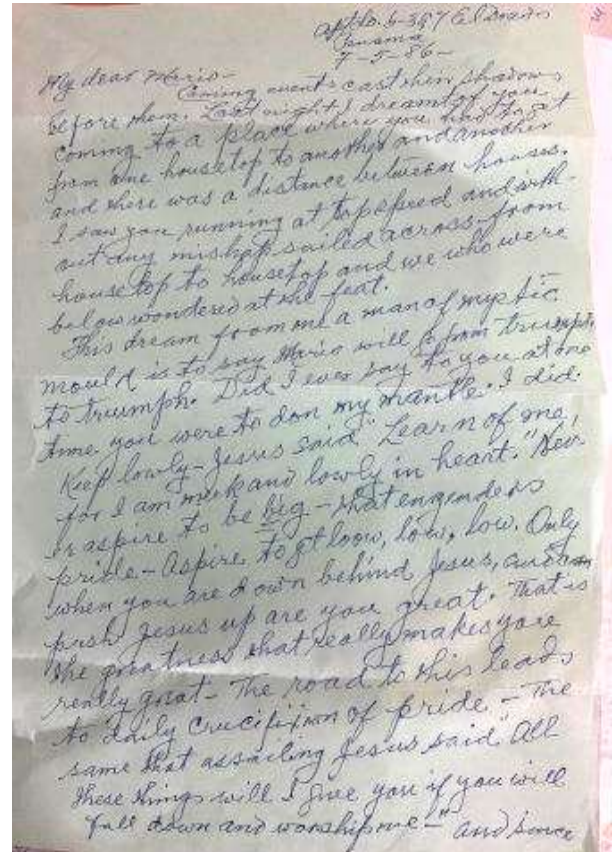 Aptdo. 6-387 El Dorado
Panama
7-5-86-
My dear Mario-
Coming events cast their shadows
before them. Last night I dreamt of you
coming to a place where you had to get
from one housetop to another and another
and there was a distance between houses.
I saw you running at top speed and with-
out any mishap sailed across from
housetop to housetop and we who were
below wondered at the feat.
This dream from me a man of mystic
mould is to say Mario will go from triumph
to triumph. Did I ever say to you at one
time you were to don my mantle. I did.
Keep lowly - Jesus said "Learn of me,
for I am meek and lowly in heart." Nev-
er aspire to be big - that engenders
pride - Aspire to get low, low, low. Only
when you are down behind Jesus, and
push Jesus up are you great. That is
the greatness that really makes you
really great - The road to this leads
to daily crucifixion of pride - The
same that assailing Jesus said "All
these things will I give you if you will
fall down and worship me -" and since